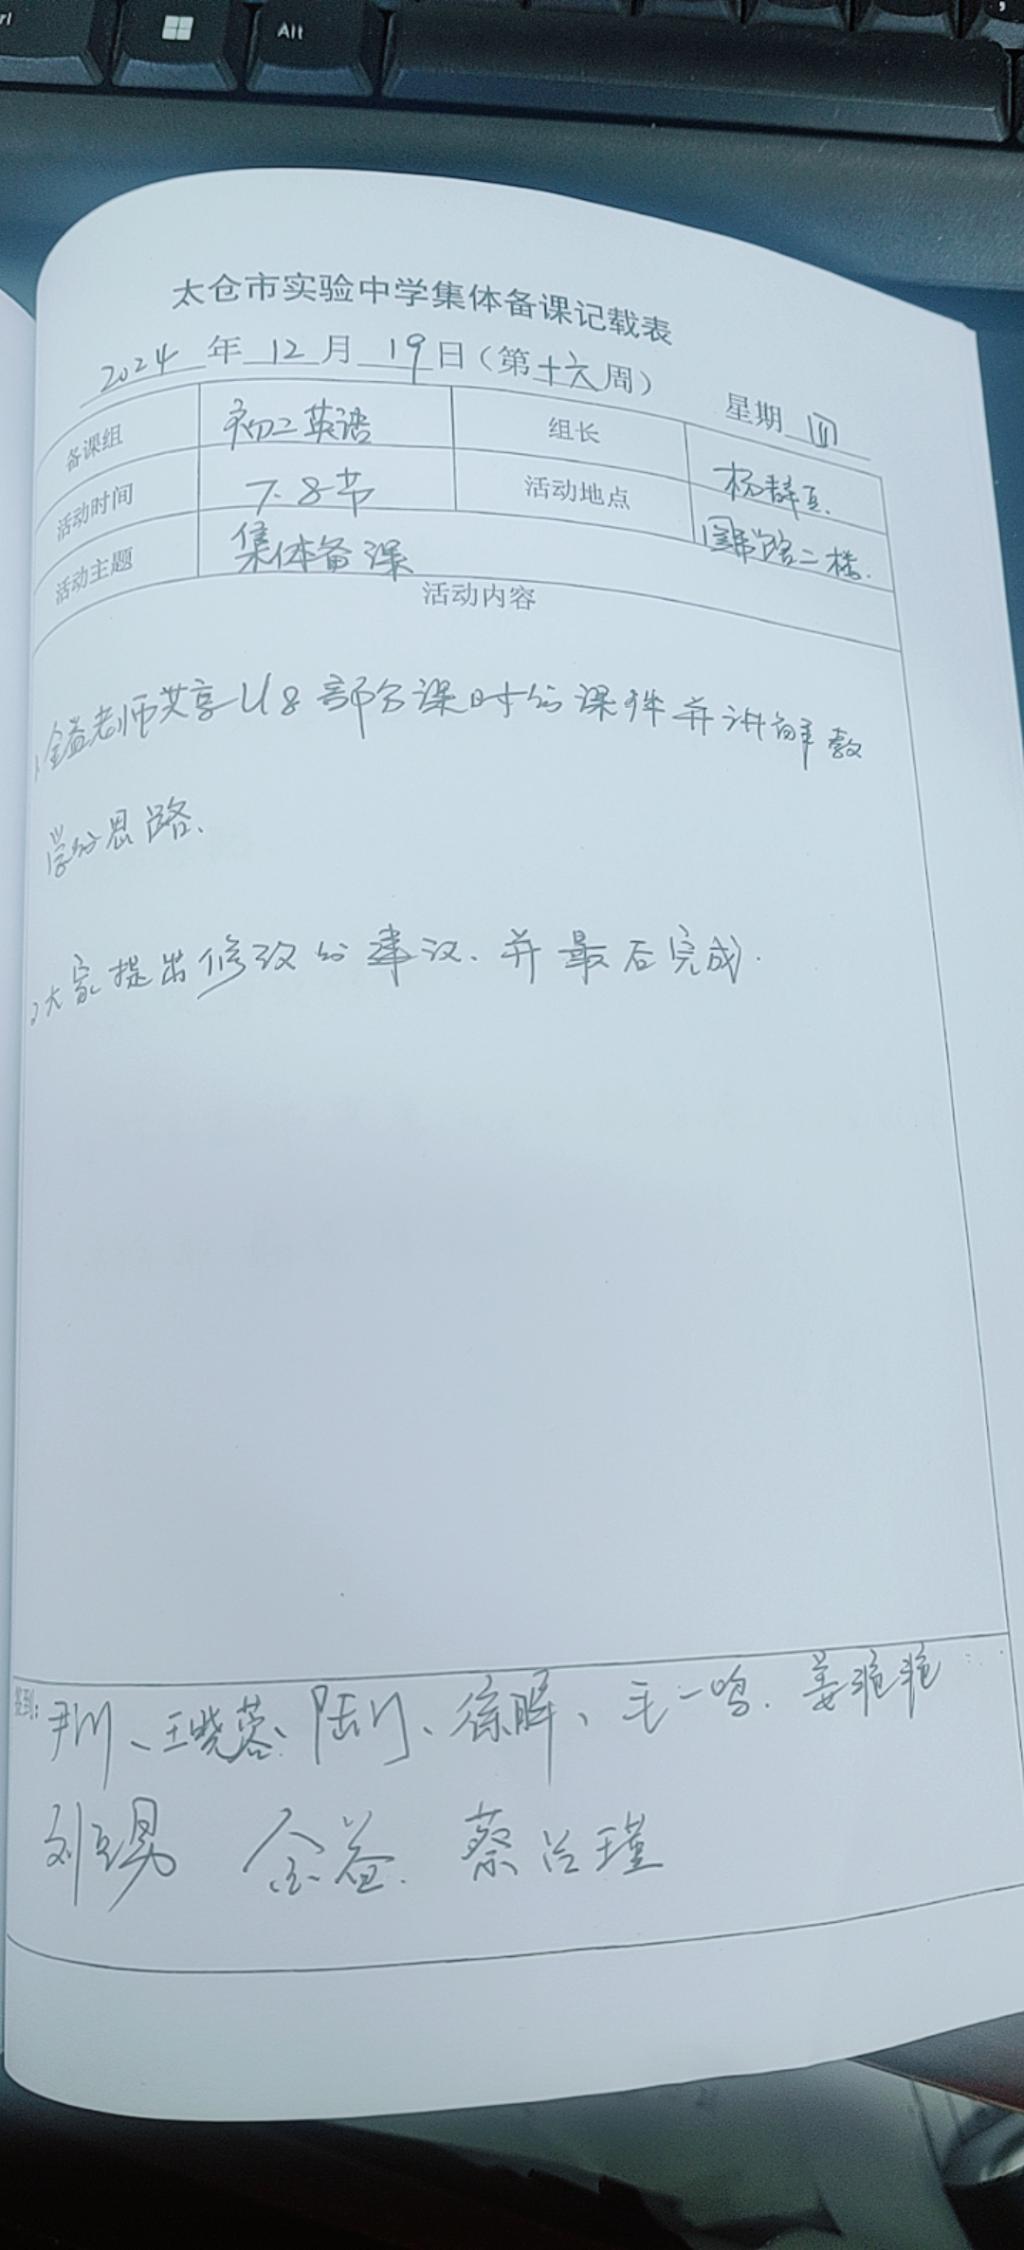 rl
Alt
太仓市实验中学集体备课记载表
2024年12月19日(第十六周) 星期四
备课组 初二英语 组长 杨
活动时间 7.8节 活动地点 二楼.
活动主题 集体备课
活动内容
1.金益老师共享U8部分课时的课件并讲解教
学的思路、
2大家提出修改的建议、并最后完成.
签到: 尹川、王晓蓉、陆、徐晖、毛一鸣.姜艳艳
刘 金益. 蔡瑾